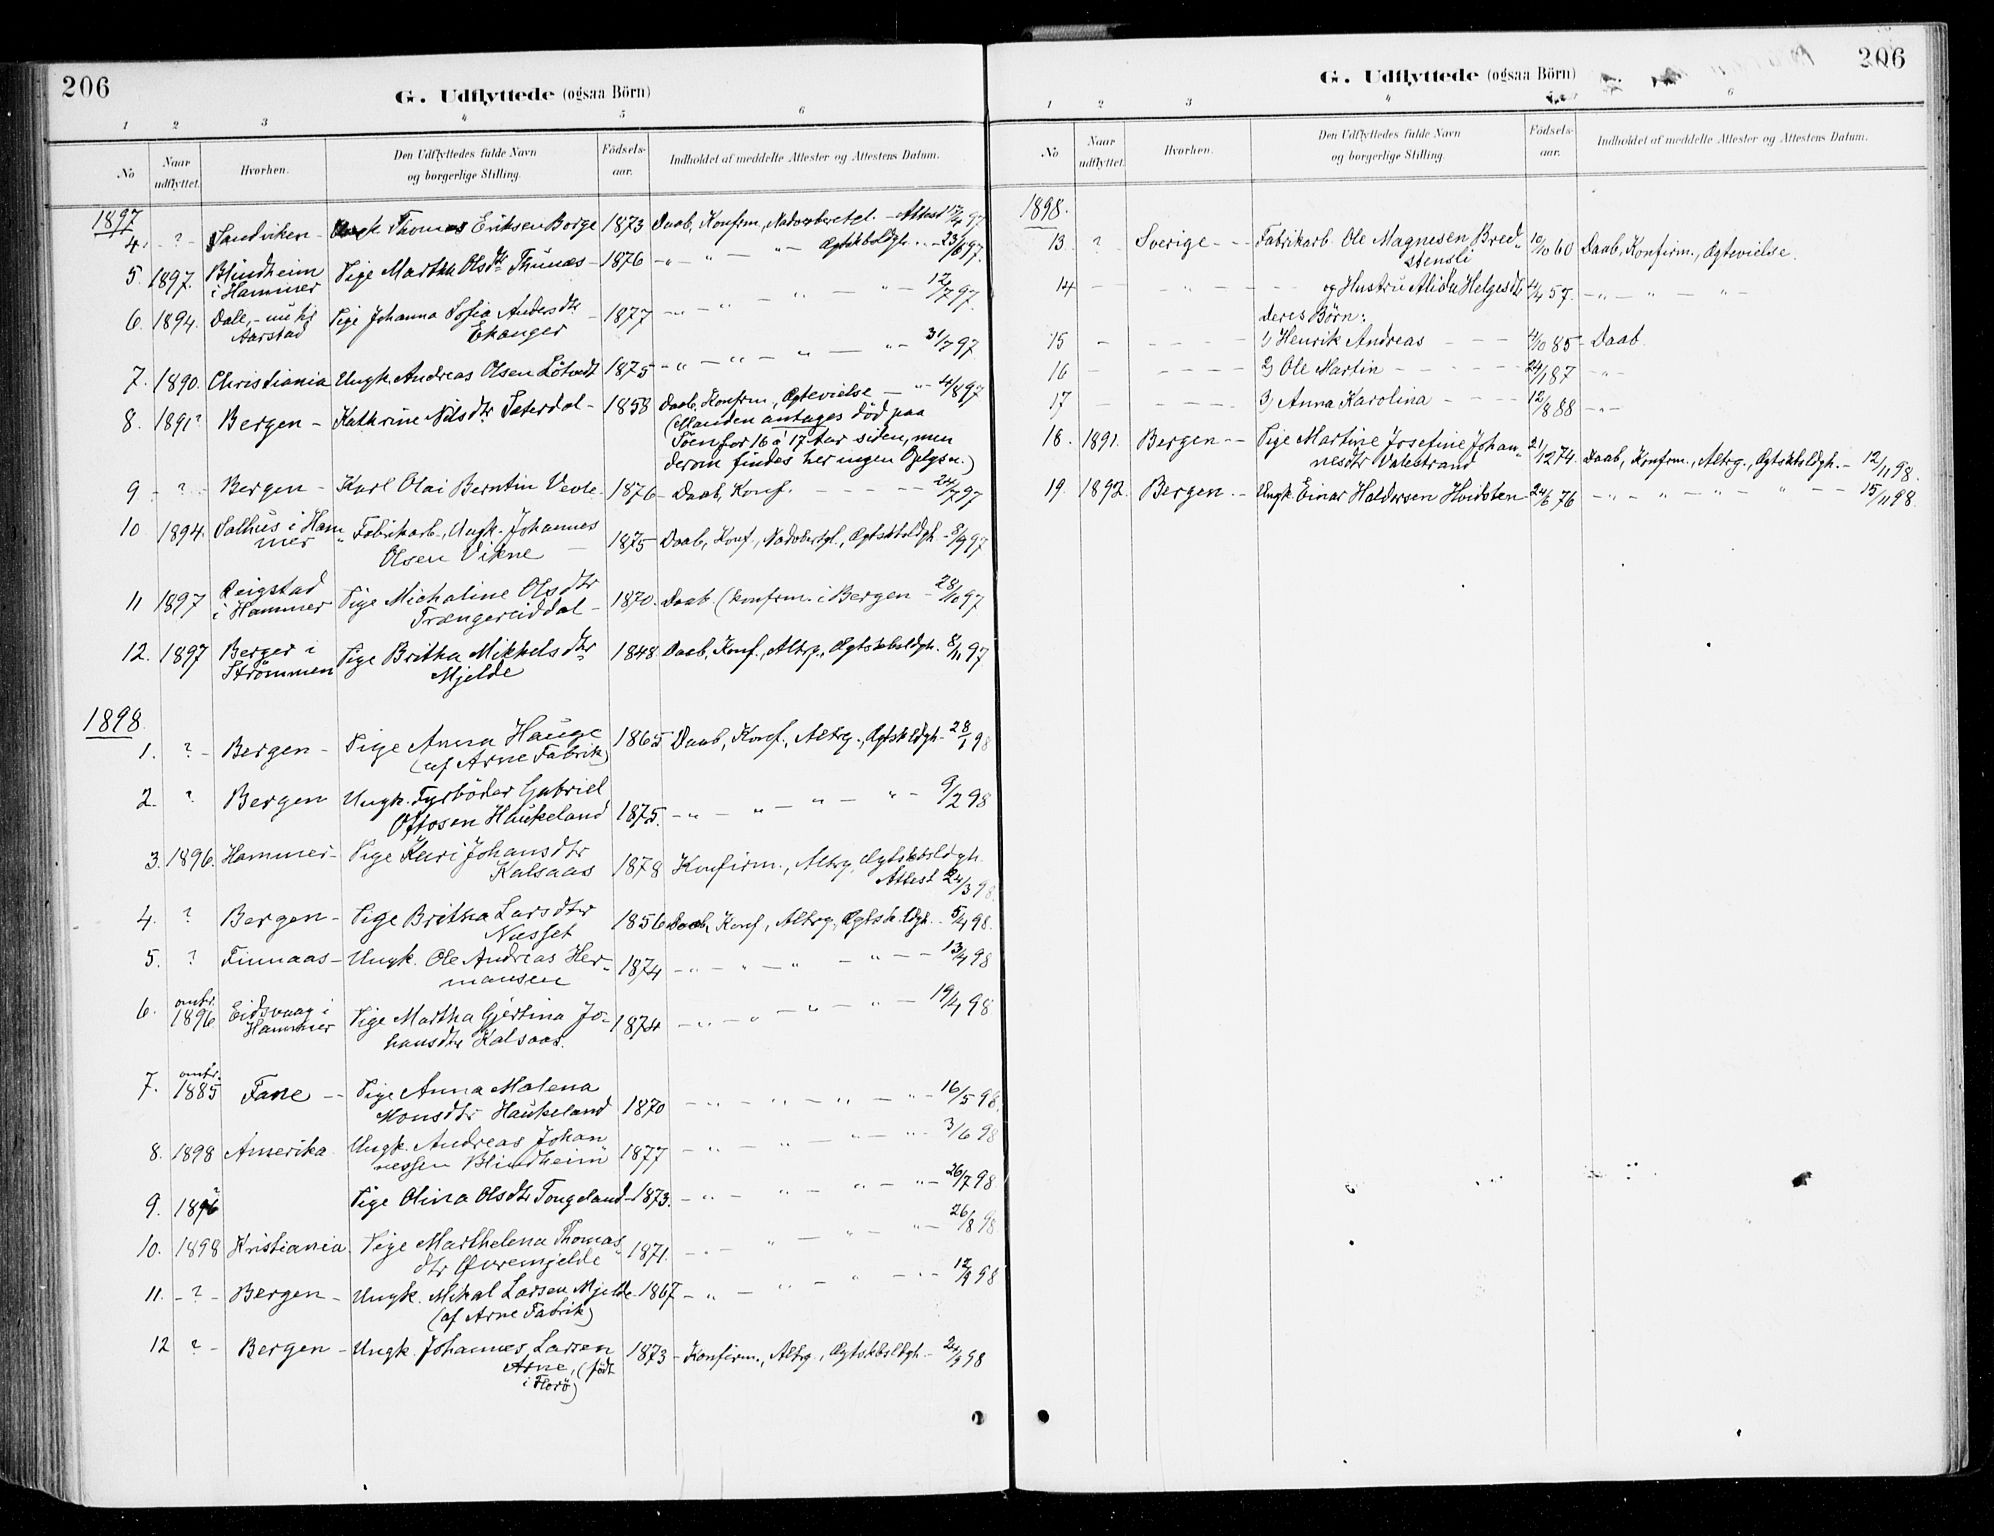 206
G. Udflyttede (ogsaa Börn)
1 2 3 4 5 6
No
Naar udflyttet.
Hvorhen.
Den Udflyttedes fulde Navn og borgerlige Stilling.
Födsels-aar.
Indholdet af meddelte Attester og Attestens Datum.
1897
4. - ? - Sandviken - Ungk Thomas Eriksen Borge 1873 Daab, Konfrm, Nadverberetgl. - Attest 17/4 97
5. 1897. Blindheim i Hammer Pige Martha Olsdtr Thunæs - 1876 - " - " - " - Ægtskbsldgh. - 23/6 97.
6. 1894. Dale, - nu hj Aarstad Pige Johanna Sofia Andersdtr Ekanger - 1877 - " - " - " - " - 12/7 97.
7. 1890. Christiania Ungk. Andreas Olsen Lötvedt 1875 - " - " - " - " - 31/7 97
8. 1891? Bergen - Kathrine Nilsdtr Sæterdal - 1858 Daab, Konfrm, Ægtevielse - " - 4/8 97
(Manden antages död paa
Söen for 16 á 17 Aar siden, men
derom findes her ingen Oplysn.)
9 - ? - Bergen - Karl Olai Berntin Vevle 1876 - Daab, Konf. - - - - 24/7 97
10 1894. Salhus i Hammer " Fabrikarb., Ungk. Johannes Olsen Vikne - 1875 Daab, Konf., Nadvbertgl., Ægtskbsldgh - 8/9 97
11 1897 Reigstad i Hammer Pige Michaline Olsdtr Trængereiddal - 1870. Daab (konfrm. i Bergen - 28/10 97
12. 1897 Berger i Strömmen Pige Britha Mikkelsdtr Mjelde 1848 Daab, Konf., Altrg., Ægtskbsldgh. 8/11 97
1898.
1. ? - Bergen - Pige Anna Hauge (af Arne Fabrik) 1865 Daab, Konf., Altrg., Ægtskbsldgh. 28/1 98
2. ? Bergen Ungk. Fyrböder Gabriel Ottosen Haukeland 1875. - " - " - " - " - 9/2 98
3. 1896. Hammer - Pige Kari Johansdtr Kalsaas 1878 Konfirm., Altrg, Ægtskbsldgh. Attest 24/3 98
4. ? Bergen - Pige Britha Larsdtr Næsset 1856 Daab, Konf, Altrg., Ægtskbsldgh. - 5/4 98.
5. ? Finnaas - Ungk. Ole Andreas Hermansen 1874 - " - " - " - " - - 13/4 98
6. omtr. 1896 Eidsvaag i Hammer Pige Martha Gjertina Johansdtr Kalsaas. 1874 - " - " - " - " - 19/4 98
7. omtr. 1885 Fane - - Pige Anna Malena Monsdtr Haukeland 1870 - " - " - " - " - 16/5 98.
8. 1898 Amerika Ungk. Andreas Johannessen Blindheim 1877 - " - " - " - " - 3/6 98
9. 1896 Pige Olina Olsdtr Tongeland - 1873. - " - " - " - " - 26/7 98
10. 1898 Kristiania Pige Marthelena Thomasdtr Øvremjelde 1871. - " - " - " - " - 26/8 98
11. - ? - Bergen - Ungk. Mikal Larsen Mjelde - 1867 - " - " - " - " - 12/9 98
(af Arne Fabrik)
12 ? - Bergen - Ungk. Johannes Larsen Arne, (födt i Florö) 1873 - Konfirm., Altrg., Ægtskbsldgh. - 24/9 98
206
G. Udflyttede (ogsaa Börn)
1 2 3 4 6
No
Naar udflyttet.
Hvorhen.
Den Udflyttedes fulde Navn og borgerlige Stilling.
Födsels-aar.
Indholdet af meddelte Attester og Attestens Datum.
1898.
13. ? Sverige - - Fabrikarb. Ole Magnesen Bredstensli 10/10 60 Daab, Konfirm., Ægtevielse.
14 - - " - - og Hustru Alida Helgesdtr 4/4 57. - " - " - " -
deres Börn:
15 - - - - - 1) Henrik Andreas - - - 11/10 85 - Daab
16 - - - - - 2) Ole Martin - - - - - 24/1 87 - " -
17 - - - - - 3) Anna Karolina - - - 12/8 88 - " -
18. 1891. Bergen - - Pige Martine Josefine Johannesdtr Valestrand 21/12 74. Daab, Konfrm., Altrg., Ægtskbsldgh. - 12/11 98.
19. 1892. Bergen - - Ungk. Einar Haldorsen Hvidsten - 24/6 76 - " - " - " - " - - 15/11 98.